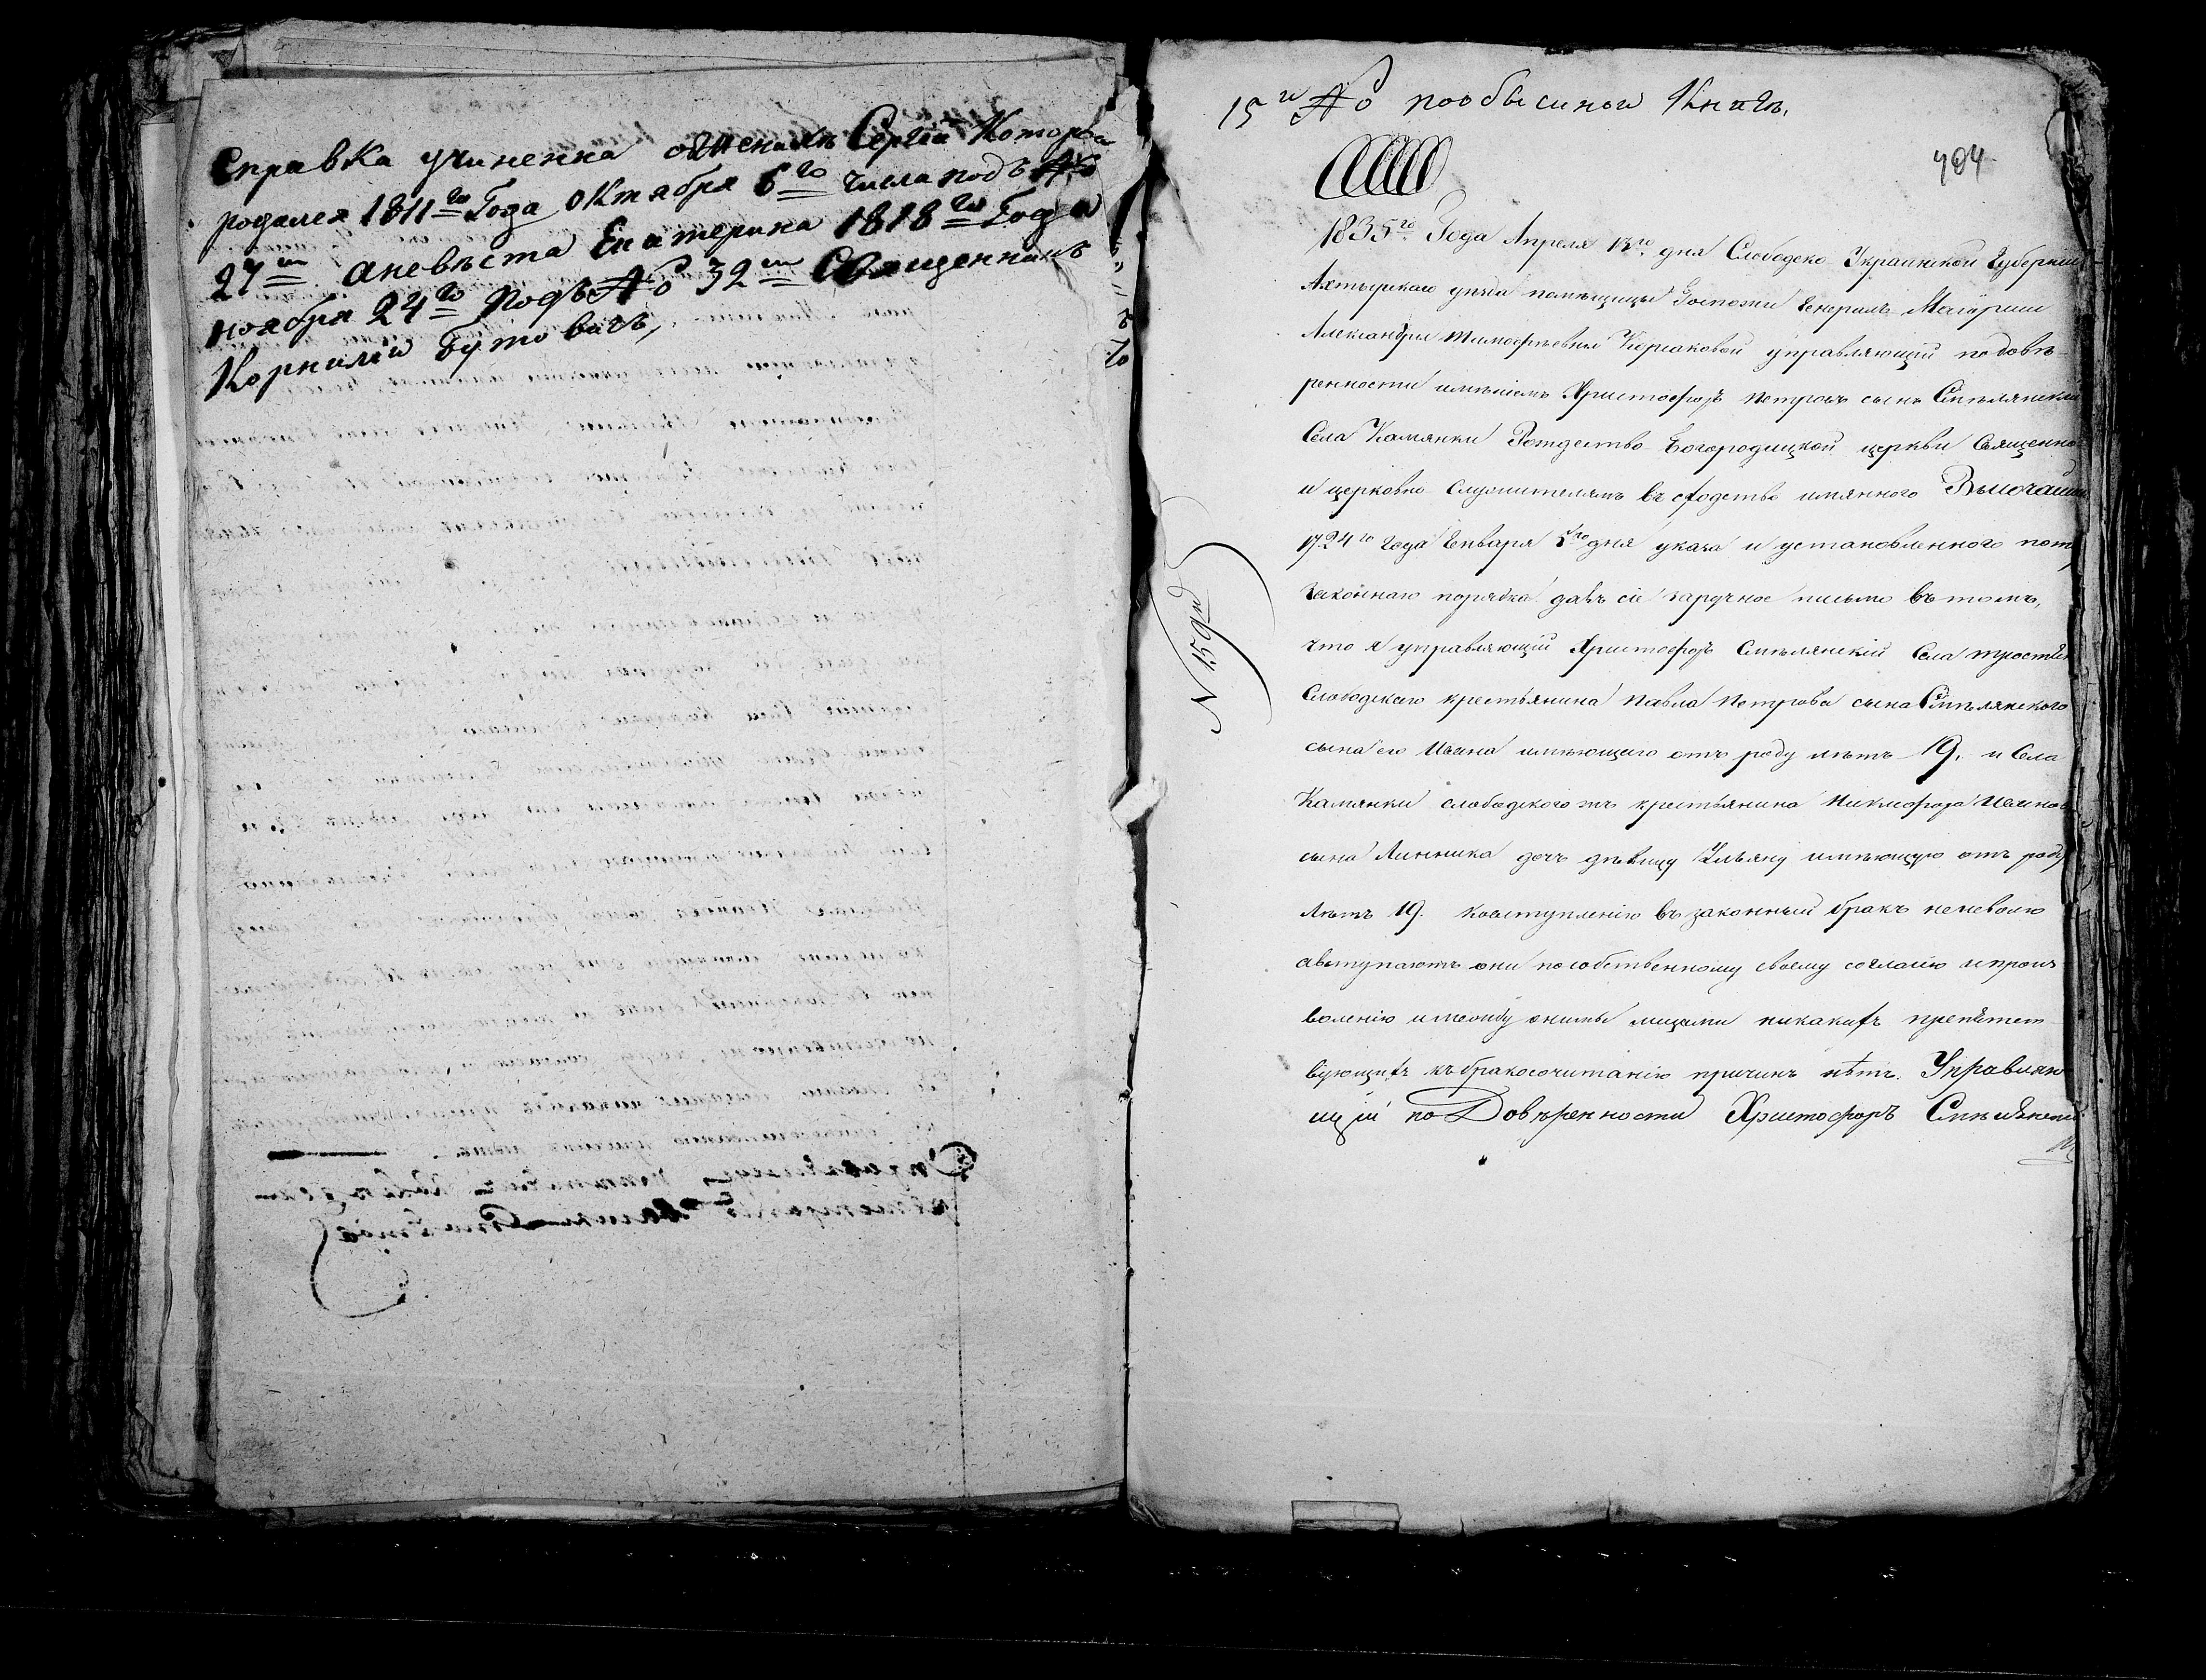 Справка учиненна оженихѣ Сергій Которы
родился 1811го Года Октября 6го числа подъ №
27м аневѣста Екатерина 1818го Года
ноября 24го Подъ № 32м Священникъ
Корнилій Бутовичъ,
15й № пообыскной Книгѣ.
404
1835го Года Апреля дня Слободско Украинской Губерніи
Ахтырскаго уѣзда помѣщицы Госпожи Генералъ Маіорши
Александры Тимофѣевны Корсаковой управляющій подовѣ-
ренности имѣніемъ Христофоръ Петровъ сынъ Смѣлянскій
Села Камянки Рождество-Богородицкой церкви Священно
и церковно-служителямъ въ сходство имянного Высочайш
1724го Года Генваря 5го дня указа и установленного пот
законнаго порядка давъ сіе заручное письмо въ томъ,
что я управляющій Христофоръ Смѣлянскій Села Тростян
Слободскаго крестьянина Павла Петрова сына Смѣлянского
сына его Ивана имѣющаго отъ роду лѣтъ 19. и Села
Камянки слободского жъ крестьянина Никифора Иванов
сына Линника дочь дѣвицу Ульяну имѣющую отъ роду
лѣтъ 19. Ковступленію въ законный бракъ неневолю
авступаютъ они пособственному своему согласію ипроиз
воленію имежду онимы лицами никакихъ препятст
вующихъ къ бракосочитанію причинъ нѣтъ. Управляю
щій по Довѣренности Христофоръ Смѣлянскій
N 159й